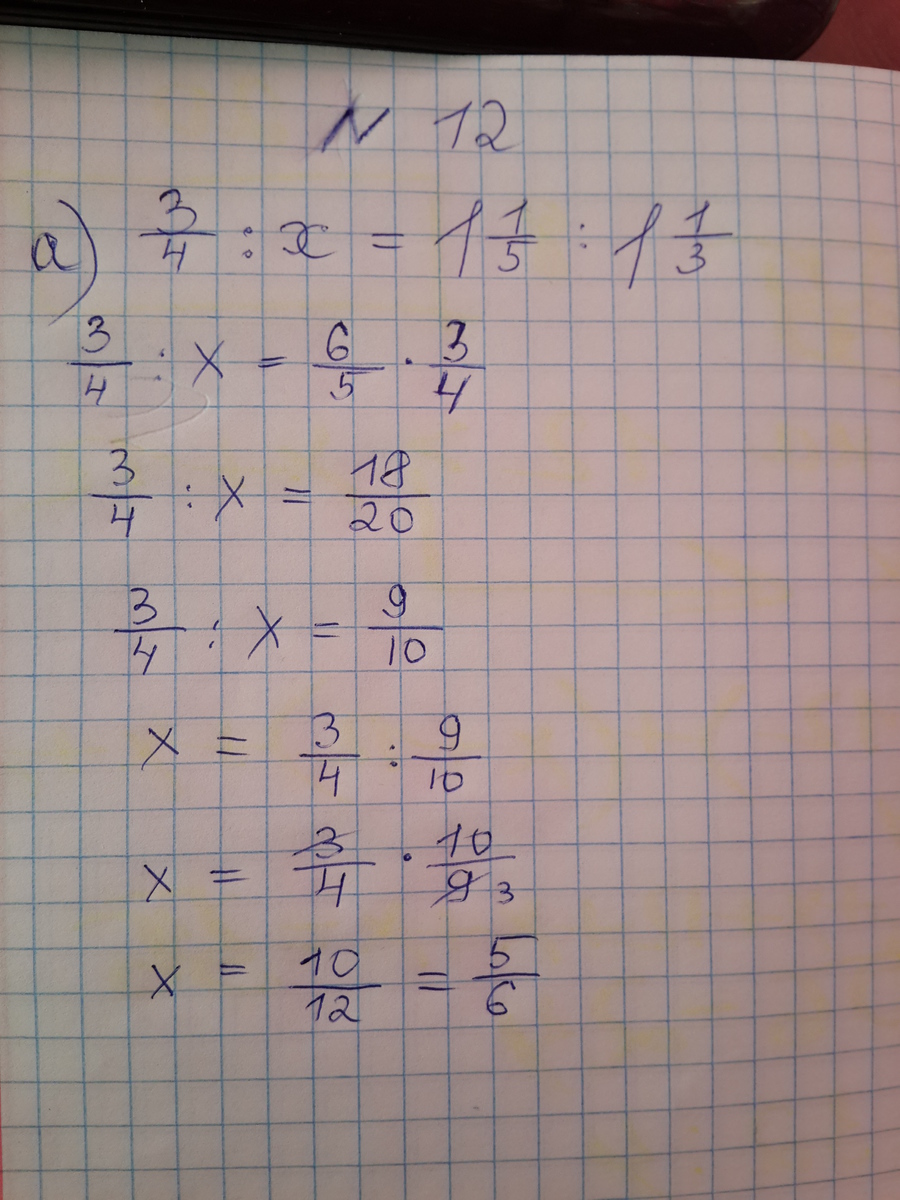 N 12
а) 3/4 : x = 1 1/5 : 1 1/3
3/4 : x = 6/5 · 3/4
3/4 : x = 18/20
3/4 : x = 9/10
x = 3/4 : 9/10
x = 3/4 · 10/9 3
x = 10/12 = 5/6